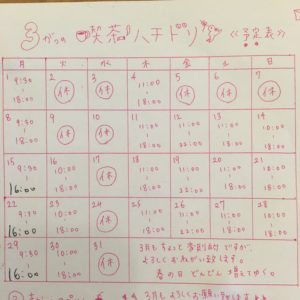 3がつの 喫茶 ハチドリ 《予定表》
月 火 水 木 金 土 日
1 9:30 | 18:00
2 休
3 休
4 11:00 | 18:00
5 休
6 休
7 休
8 9:30 | 18:00
9 休
10 休
11 11:00 | 18:00
12 11:00 | 22:00
13 11:00 | 18:00
14 10:00 | 18:00
15 9:30 | 16:00
16 10:00 | 18:00
17 休
18 11:00 | 18:00
19 11:00 | 22:00
20 11:00 | 18:00
21 10:00 | 18:00
22 9:30 | 16:00
23 9:30 | 18:00
24 休
25 11:00 | 18:00
26 11:00 | 22:00
27 11:00 | 18:00
28 10:00 | 18:00
29 9:30 | 16:00
30 10:00 | 18:00
31 休
3月もちょっと変則的ですが、
よろしくお願い致します。
春の日 どんどん 増えてゆく。
3月もよろしくお願い致します